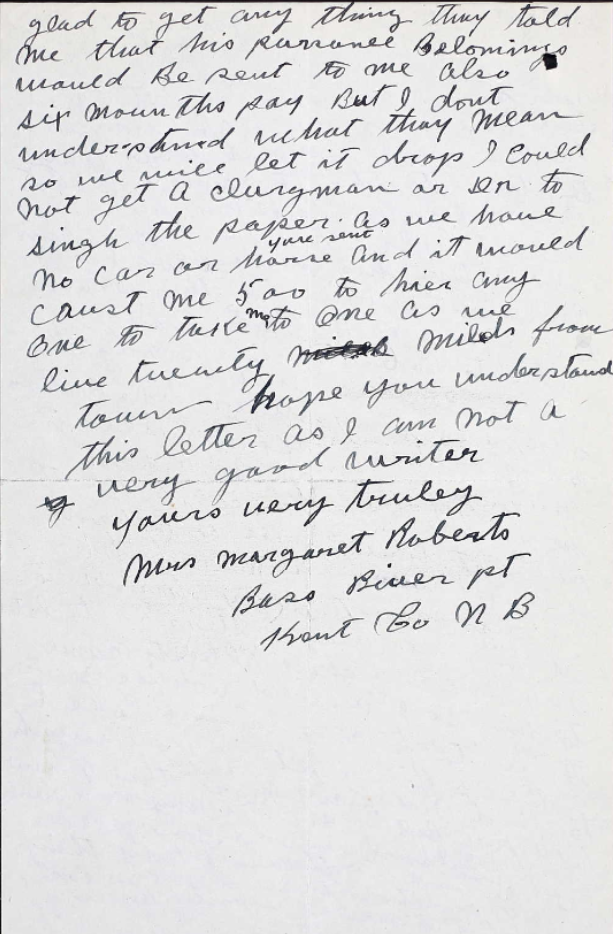 glad to get any thing they told
me that his pursonel Belomings
would Be sent to me also
six mounths pay But I dont
understand what thay mean
so we will let it drop I could
not get a clurgman or Dr to
singh the paper you sent as we have
no car or horse and it would
caust me 5 00 to hier any
one to take me to one as we
live twenty milds from
town hope you understand
this letter as I am not a
very good writer
yours very truley
Mrs Margaret Roberts
Bass River pt
Kent Co N B